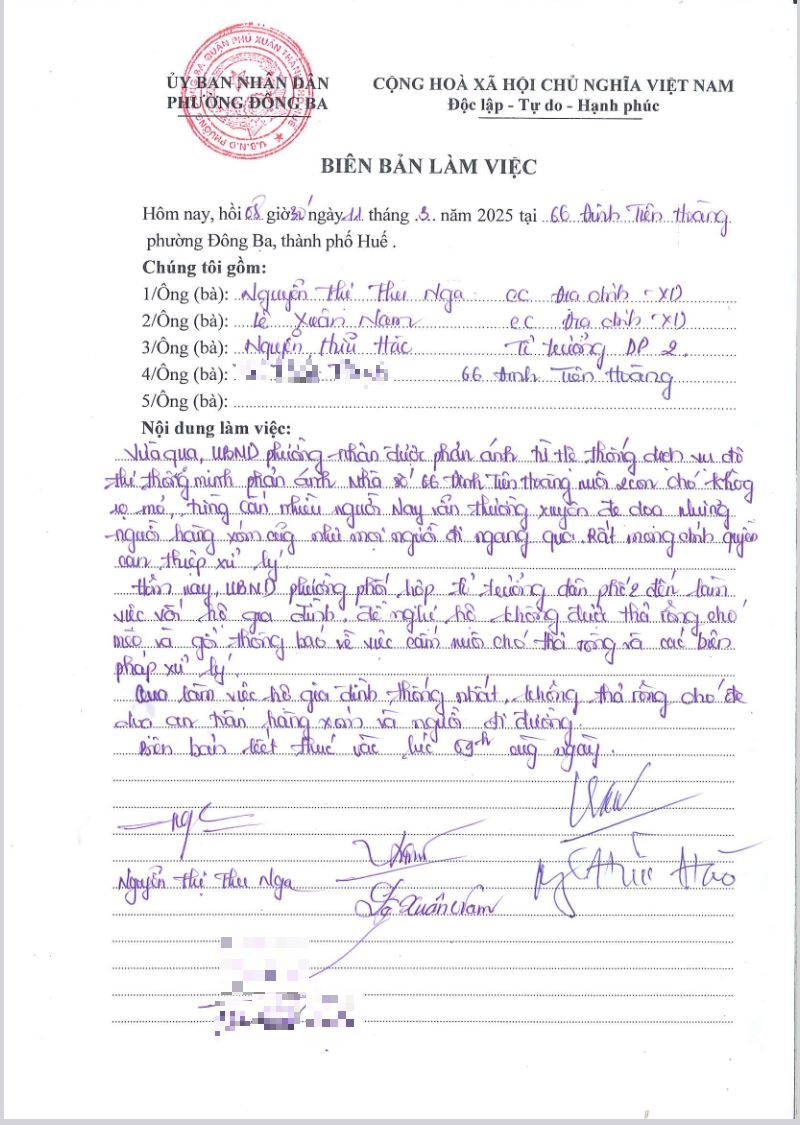 ỦY BAN NHÂN DÂN
PHƯỜNG ĐÔNG BA
CỘNG HOÀ XÃ HỘI CHỦ NGHĨA VIỆT NAM
Độc lập - Tự do - Hạnh phúc
BIÊN BẢN LÀM VIỆC
Hôm nay, hồi 08 giờ 30' ngày 11 tháng 3 năm 2025 tại 66 Đinh Tiên Hoàng
phường Đông Ba, thành phố Huế .
Chúng tôi gồm:
1/Ông (bà): Nguyễn Thị Thu Nga CC Địa chính - XD
2/Ông (bà): Lê Xuân Nam CC Địa chính - XD
3/Ông (bà): Nguyễn Hữu Tổ trưởng DP 2.
4/Ông (bà): 66 Đinh Tiên Hoàng
5/Ông (bà):
Nội dung làm việc:
Vừa qua, UBND phường nhận được phản ánh từ hệ thống dịch vụ đô
thị thông minh phản ánh Nhà số 66 Đinh Tiên Hoàng nuôi 2 con chó không
rọ mỏ, từng cắn nhiều người Nay vẫn thường xuyên đe dọa những
người hàng xóm cũng như mọi người đi ngang qua. Rất mong chính quyền
can thiệp xử lý.
Hôm nay, UBND phường phối hợp tổ trưởng dân phố 2 đến làm
việc với hộ gia đình, đề nghị hộ không được thả rông chó
mèo và gởi thông báo về việc cấm nuôi chó thả rông và các biện
pháp xử lý.
Qua làm việc hộ gia đình thống nhất, không thả rông chó để
cho an toàn hàng xóm và người đi đường.
Biên bản kết thúc vào lúc 09h cùng ngày.
Nguyễn Thị Thu Nga
Lê Xuân Nam